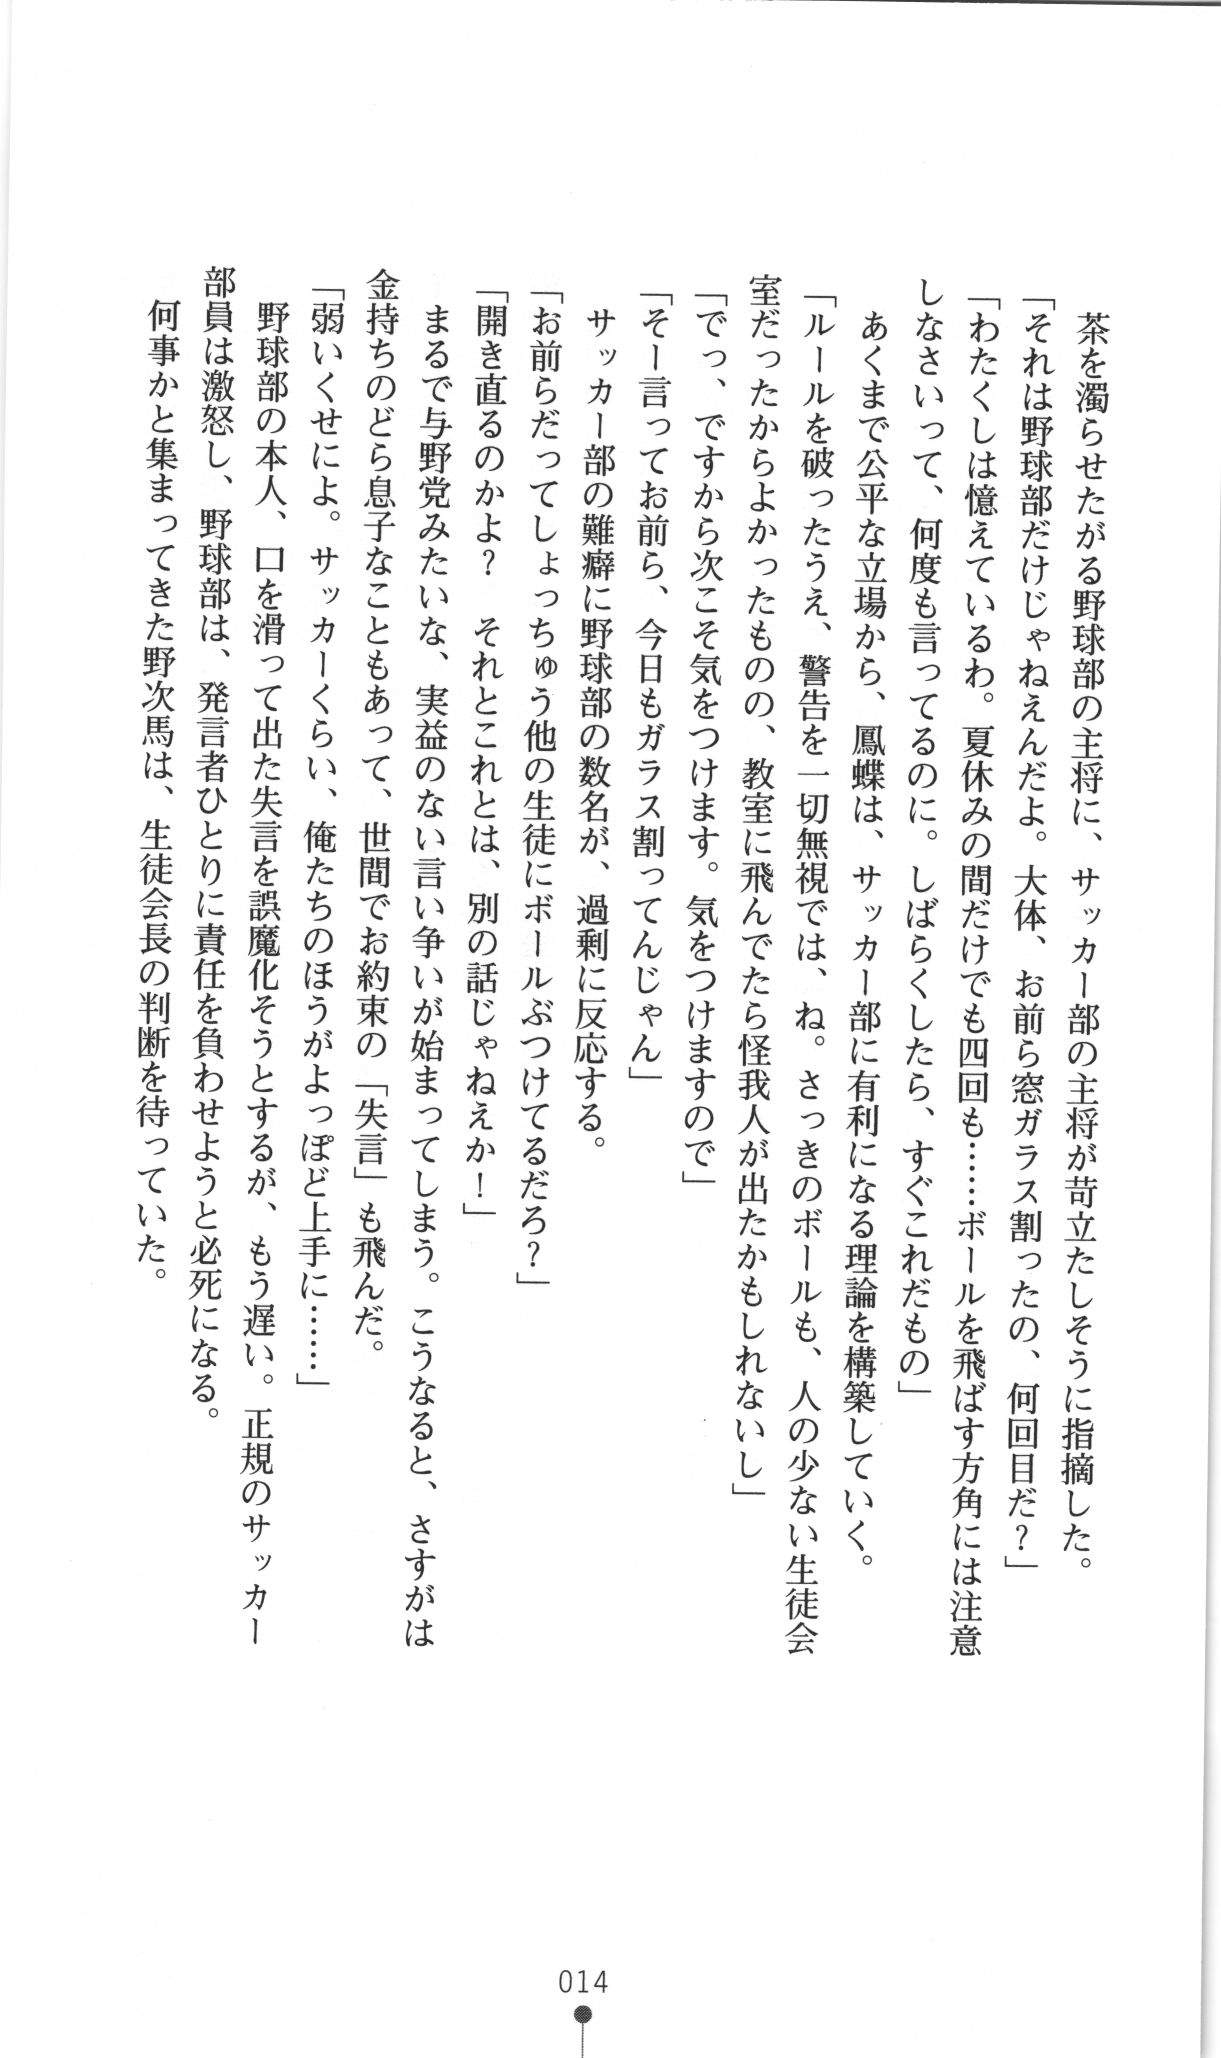 茶を濁らせたがる野球部の主将に、サッカー部の主将が苛立たしそうに指摘した。
「それは野球部だけじゃねえんだよ。大体、お前ら窓ガラス割ったの、何回目だ？」
「わたくしは憶えているわ。夏休みの間だけでも四回も……ボールを飛ばす方角には注意
しなさいって、何度も言ってるのに。しばらくしたら、すぐこれだもの」
あくまで公平な立場から、鳳蝶は、サッカー部に有利になる理論を構築していく。
「ルールを破ったうえ、警告を一切無視では、ね。さっきのボールも、人の少ない生徒会
室だったからよかったものの、教室に飛んでたら怪我人が出たかもしれないし」
「でっ、ですから次こそ気をつけます。気をつけますので」
「そー言ってお前ら、今日もガラス割ってんじゃん」
サッカー部の難癖に野球部の数名が、過剰に反応する。
「お前らだってしょっちゅう他の生徒にボールぶつけてるだろ？」
「開き直るのかよ？　それとこれとは、別の話じゃねえか！」
まるで与野党みたいな、実益のない言い争いが始まってしまう。こうなると、さすがは
金持ちのどら息子なこともあって、世間でお約束の「失言」も飛んだ。
「弱いくせによ。サッカーくらい、俺たちのほうがよっぽど上手に……」
野球部の本人、口を滑って出た失言を誤魔化そうとするが、もう遅い。正規のサッカー
部員は激怒し、野球部は、発言者ひとりに責任を負わせようと必死になる。
何事かと集まってきた野次馬は、生徒会長の判断を待っていた。
014